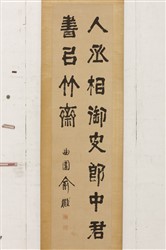 人丞相御史郎中君
書竹齋
曲園俞樾